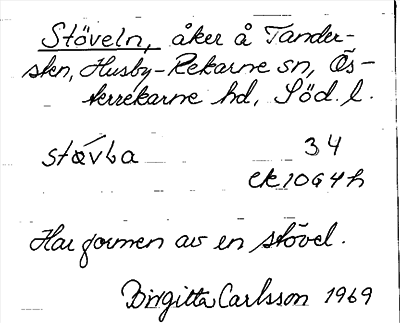 Stöveln, åker å Tander-
sten, Husby-Rekarne sn, Ös-
terrekarne hd, Söd. l.
34
ek 10G4h
Har formen av en stövel.
Birgitta Carlsson 1969